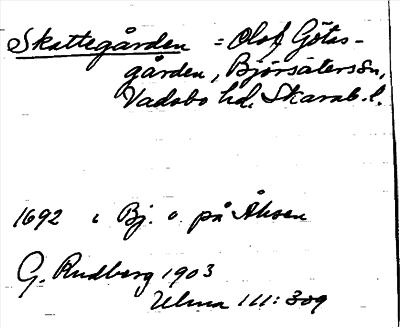 Skattegården = Olof Götas-
gården, Björsäters sn,
Vadsbo hd. Skarab. l.
1692 i Bj. o. på Åhsen
G. Rudberg 1903
Ulma 111:309